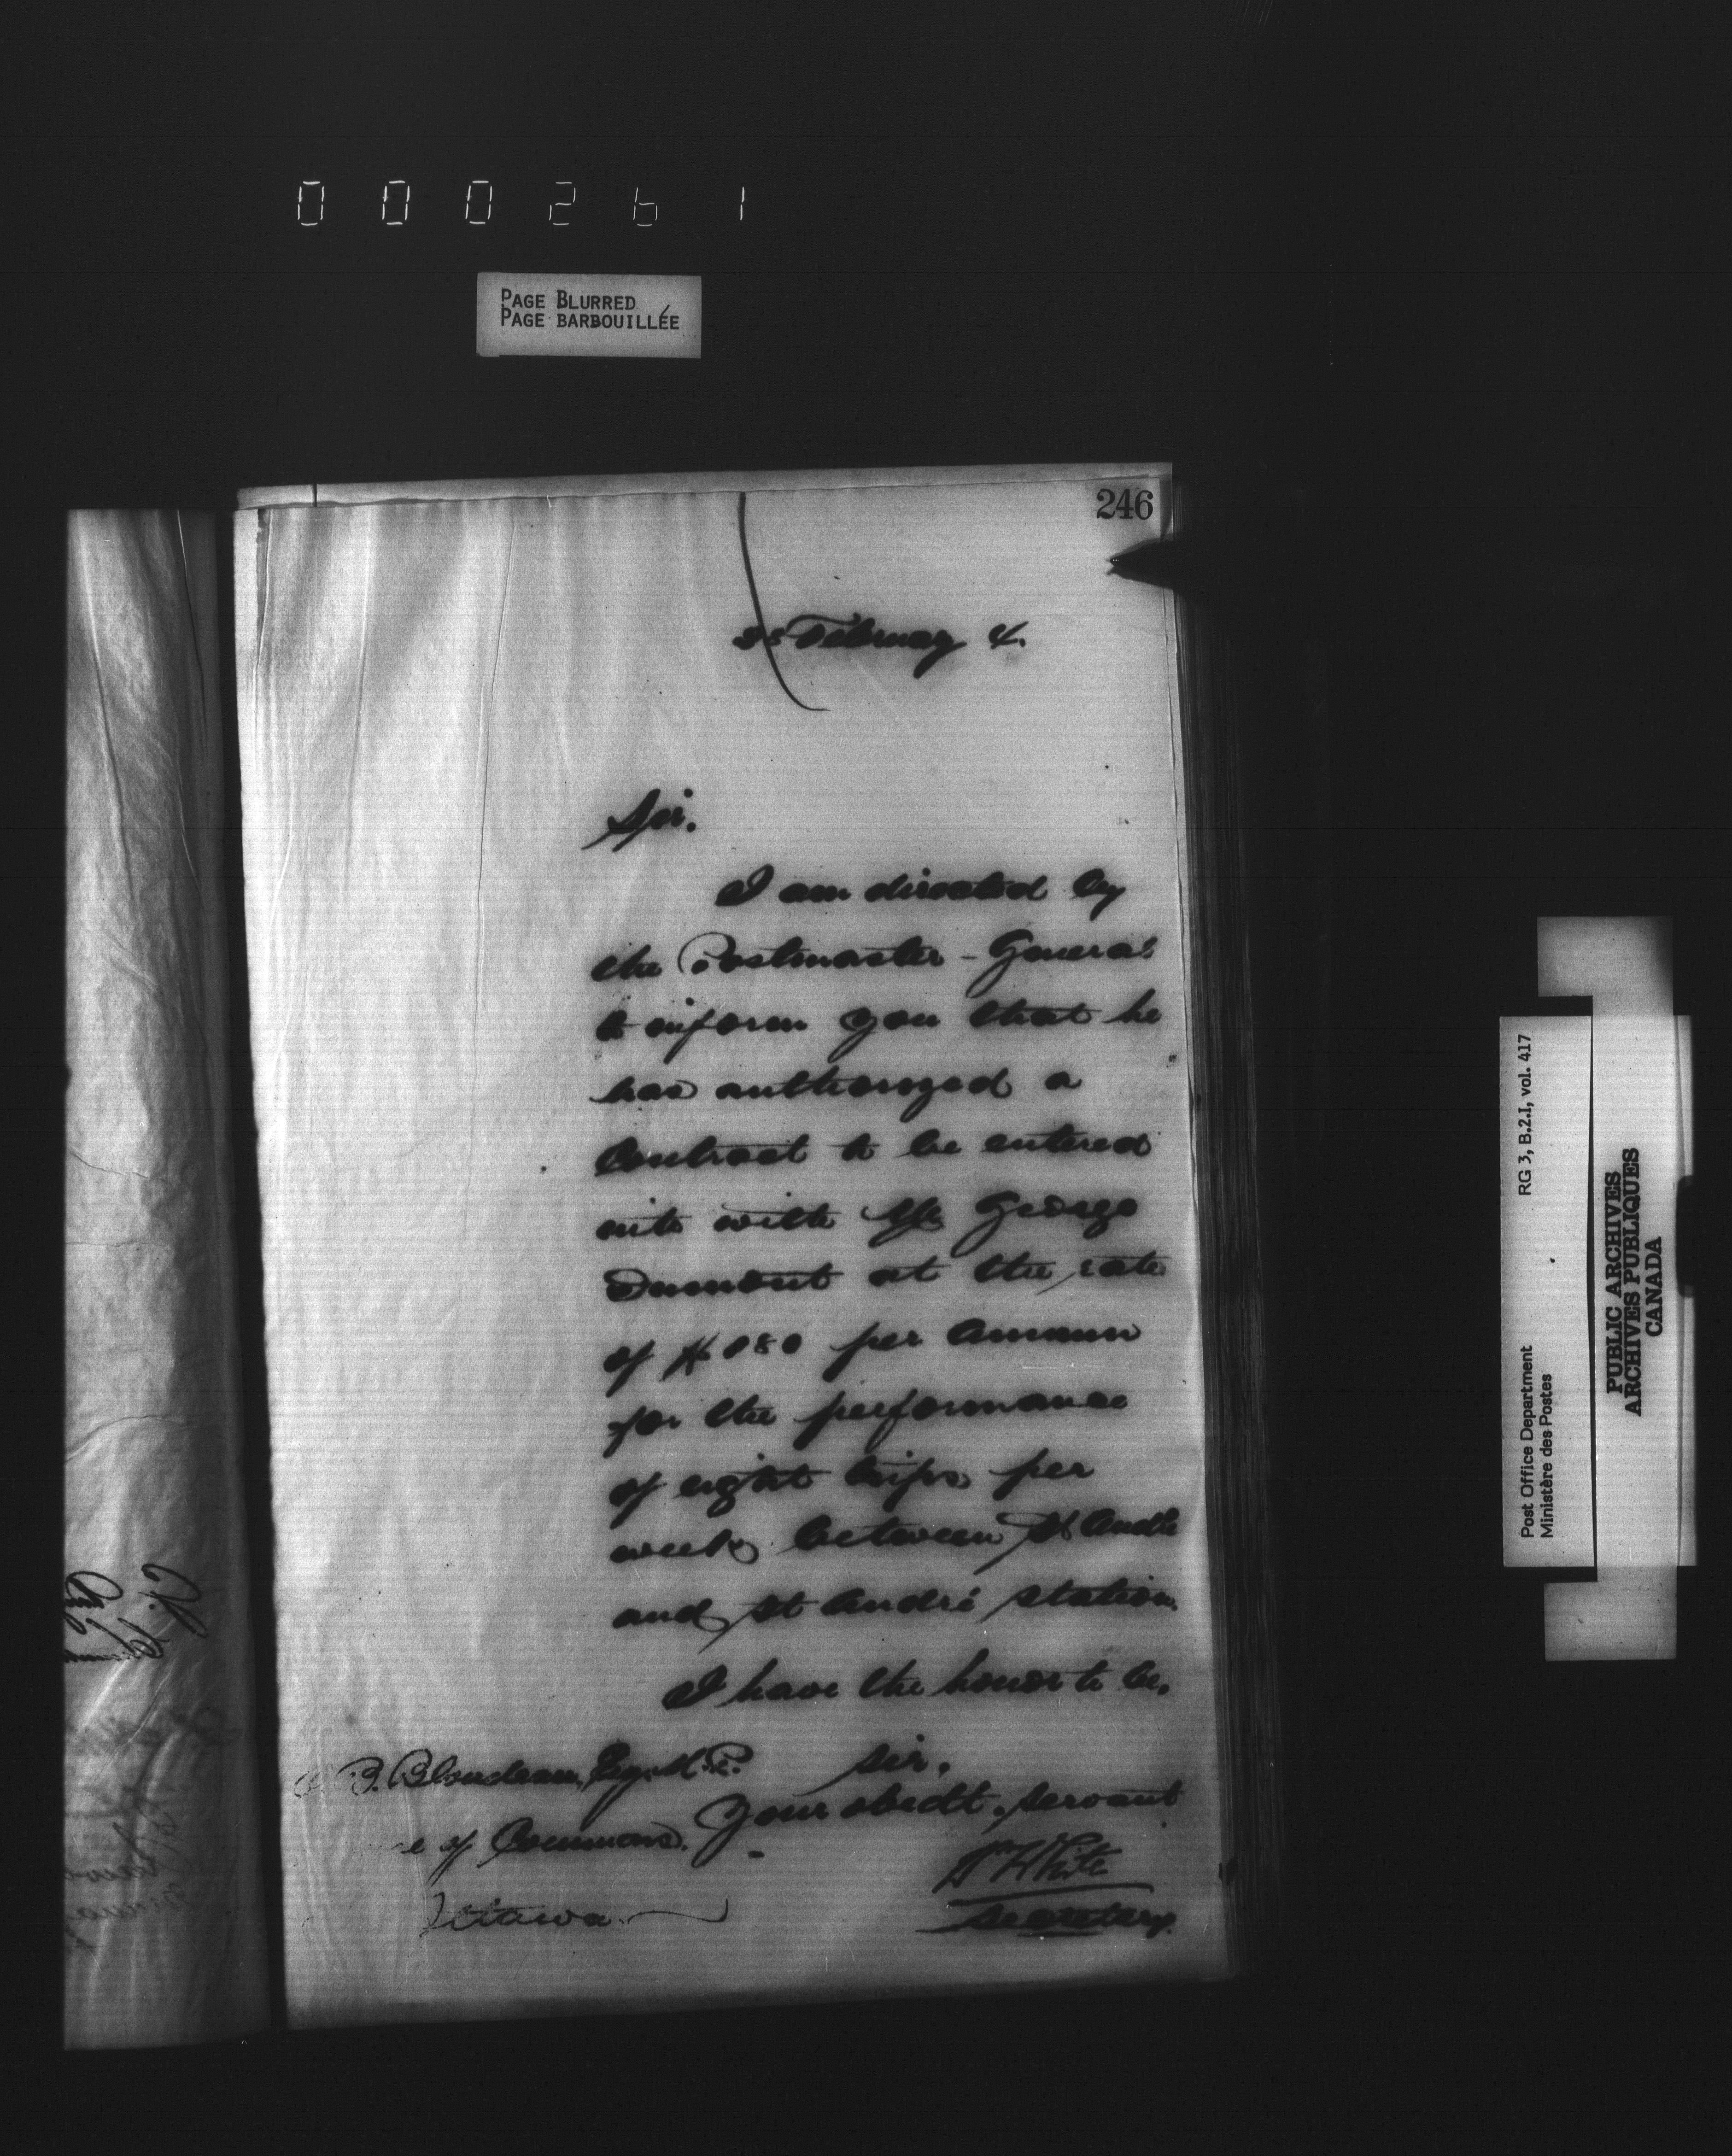 000261
PAGE BLURRED
PAGE BARBOUILLÉE
246
February 4.
Sir.
I am directed by
the Postmaster-General
to inform you that he
has authorized a
contract to be entered
into with Mr George
Dumont at the rate
of $ per annum
for the performance
of eight trips per
week between St André
and St André station.
I have the honor to be,
Sir,
Your obedt. servant
Wm White
Secretary.
B. Blondeau, Esq. M.P.
e of Commons.
Ottawa.
Post Office Department RG 3, B.2.I, vol. 417
Ministère des Postes
PUBLIC ARCHIVES
ARCHIVES PUBLIQUES
CANADA